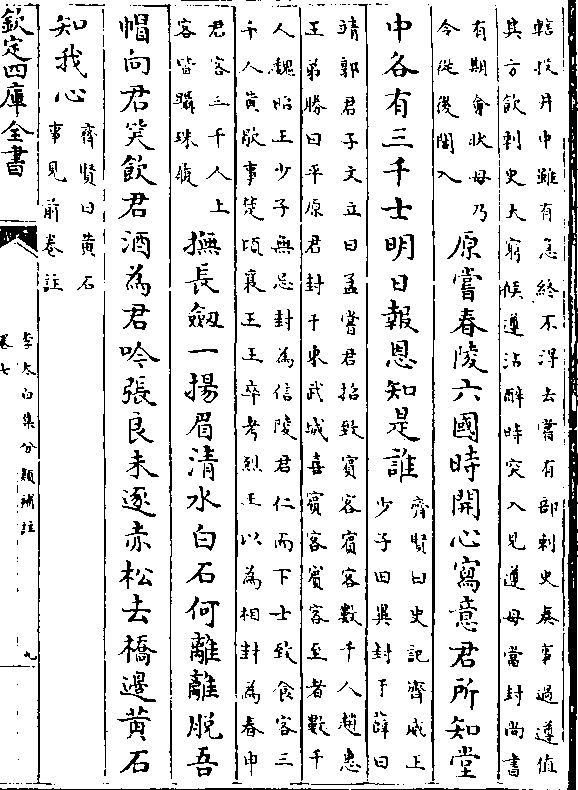 轄投井中雖有急終不得去嘗有部刺史奏事過遵值
其方飲刺史大窮候遵沾醉時突入見遵母當封尚書
有期會狀母乃
令從後閤入
原嘗春陵六國時開心寫意君所知堂
中各有三千士明日報恩知是誰
齊賢曰史記齊威王
少子田嬰封于薛曰
靖郭君子文立曰孟嘗君招致賓客賓客數千人趙惠
王弟勝曰平原君封于東武城喜賓客賓客至者數千
人魏昭王少子無忌封為信陵君仁而下士致食客三
千人黄歇事楚頃襄王王卒考烈王以為相封為春申
君客三千人上
客皆躡珠履
撫長劔一揚眉清水白石何離離脱吾
帽向君笑飲君酒為君吟張良未逐赤松去橋邊黄石
知我心
齊賢曰黄石
事見前卷註
欽定四庫全書
李太白集分類補註
卷七
九